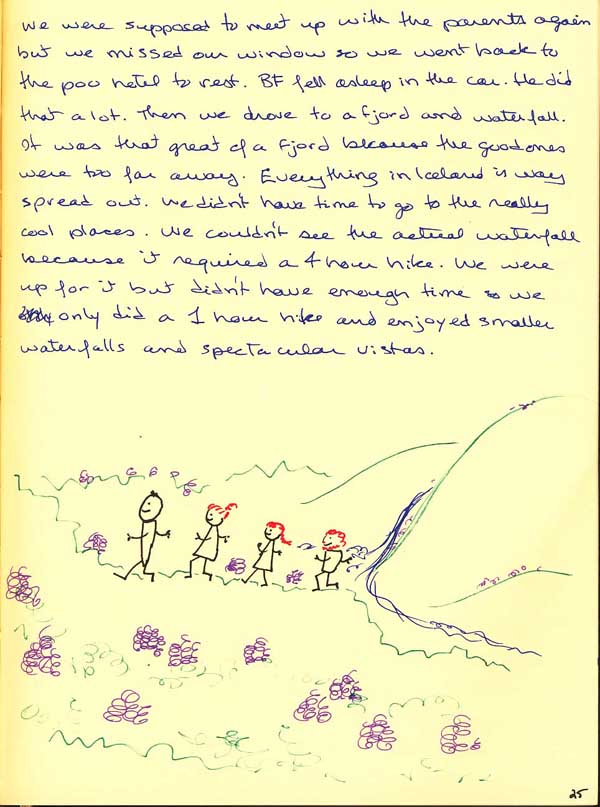 we were supposed to meet up with the parents again
but we missed our window so we went back to
the poo hotel to rest. BF fell asleep in the car. He did
that a lot. Then we drove to a fjord and waterfall.
It was that great of a fjord because the good ones
were too far away. Everything in Iceland is way
spread out. We didn't have time to go to the really
cool places. We couldn't see the actual waterfall
because it required a 4 hour hike. We were
up for it but didn't have enough time so we
only did a 1 hour hike and enjoyed smaller
waterfalls and spectacular vistas.
25